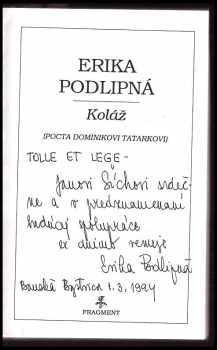 ERIKA
PODLIPNÁ
Koláž
(POCTA DOMINIKOVI TATARKOVI)
TOLLE ET LEGE -
Janovi Síchovi srdeč-
ne a v predznamenaní
budúcej spolupráce
ex animo venuje
Erika Podlipná
Banská Bystrica 1.3.1994
FRAGMENT